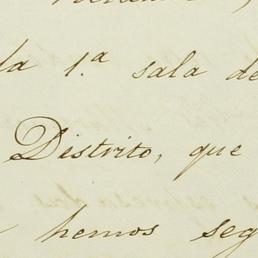 la 1.ª sala de
Distrito, que
hemos seg